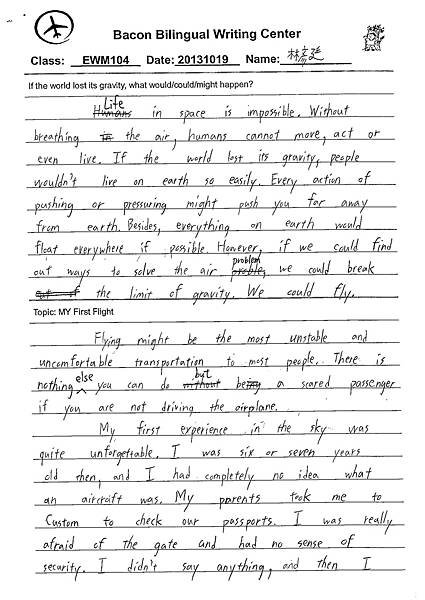 Bacon Bilingual Writing Center
Class: EWM104 Date: 20131019 Name: 林
If the world lost its gravity, what would/could/might happen?
Life
Humans in space is impossible. Without
breathing in the air, humans cannot move, act or
even live. If the world lost its gravity, people
wouldn't live on earth so easily. Every action of
pushing or pressuring might push you far away
from earth. Besides, everything on earth would
float everywhere if possible. However, if we could find
out ways to solve the air problem, we could break
the limit of gravity. We could fly.
Topic: MY First Flight
Flying might be the most unstable and
uncomfortable transportation to most people. There is
nothing else you can do without but being a scared passenger
if you are not driving the airplane.
My first experience in the sky was
quite unforgettable. I was six or seven years
old then, and I had completely no idea what
an aircraft was. My parents took me to
Custom to check our passports. I was really
afraid of the gate and had no sense of
security. I didn't say anything, and then I